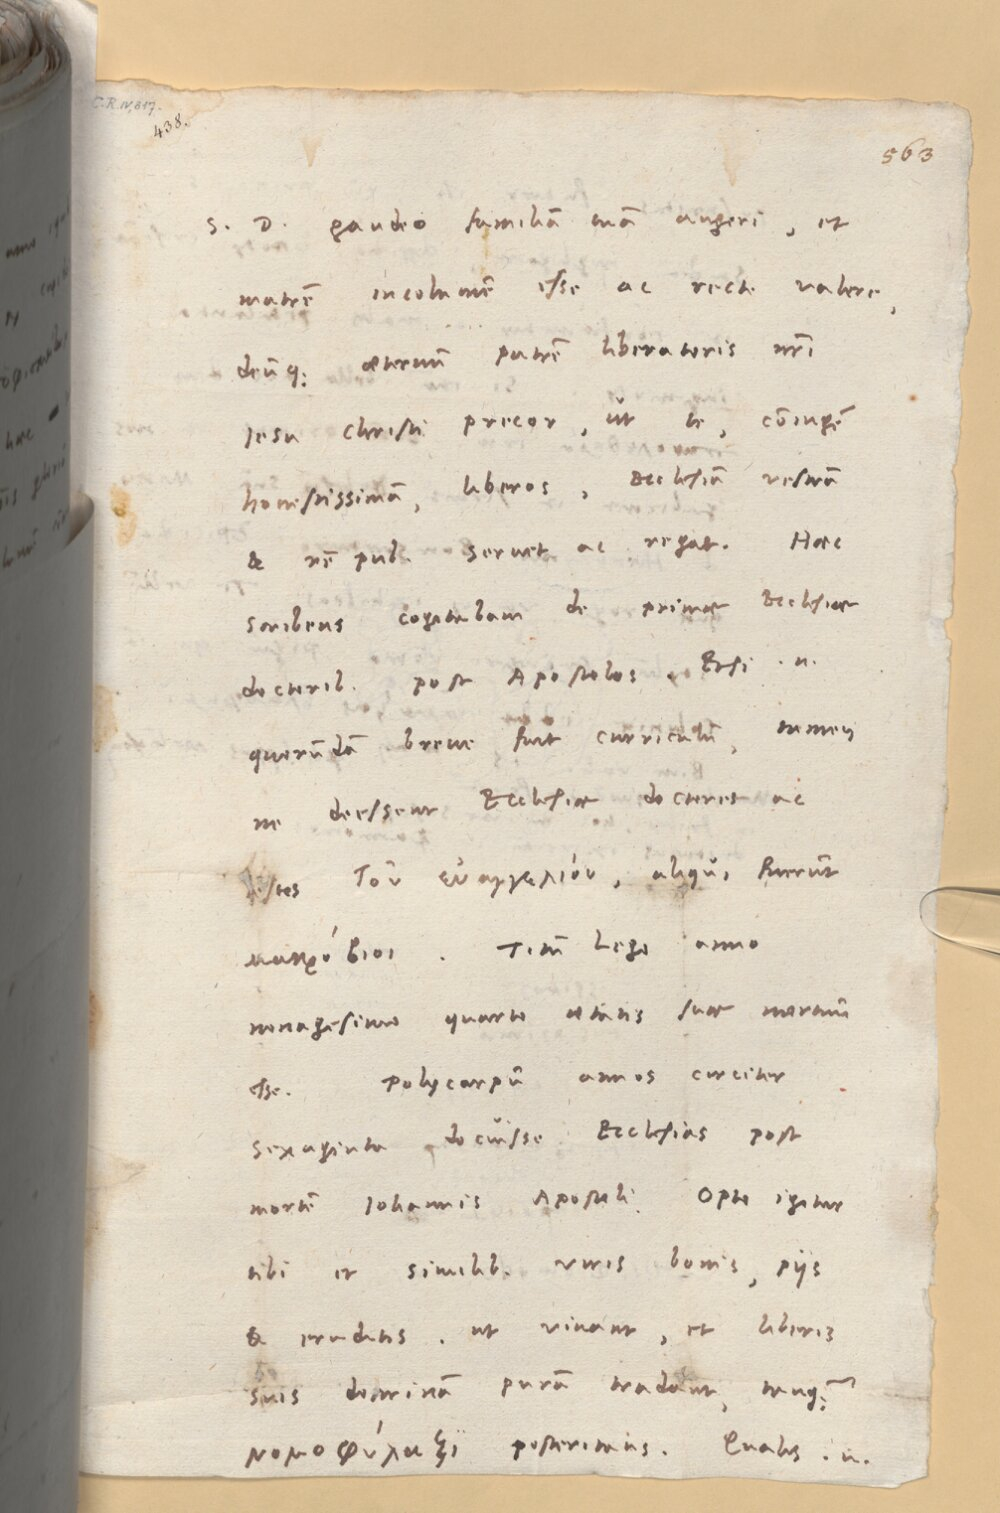 C.R. IV, 817.
438.
563
S. D. gaudeo familiā tuā augeri, et
matrē incolumē esse ac recte valere,
deūq; æternū patrē liberatoris nr̄i
Iesu Christi precor, ut te, cōiugē
honestissimā, liberos, Ecclesiā vestrā
& rē pub. servet ac regat. Hæc
scribens cogitabam de primæ Ecclesiæ
doctorib. post Apostolos. Etsi .n.
quorūdā breve fuit curriculū, tamen
ne deessent Ecclesiæ doctores ac
testes τοῦ εὐαγγελίου, aliqui fuerūt
μακρόβιοι. Titū lego anno
nonagesimo quarto ætatis suæ mortuū
esse. Polycarpū annos circiter
sexaginta docuisse Ecclesias post
mortē Iohannis Apostoli. Opto igitur
tibi et similib. viris bonis, pijs
& eruditis. ut vivant, et liberis
suis doctrinā purā tradant, tanq;
νομοφύλαξι posteritatis. Qualis .n.